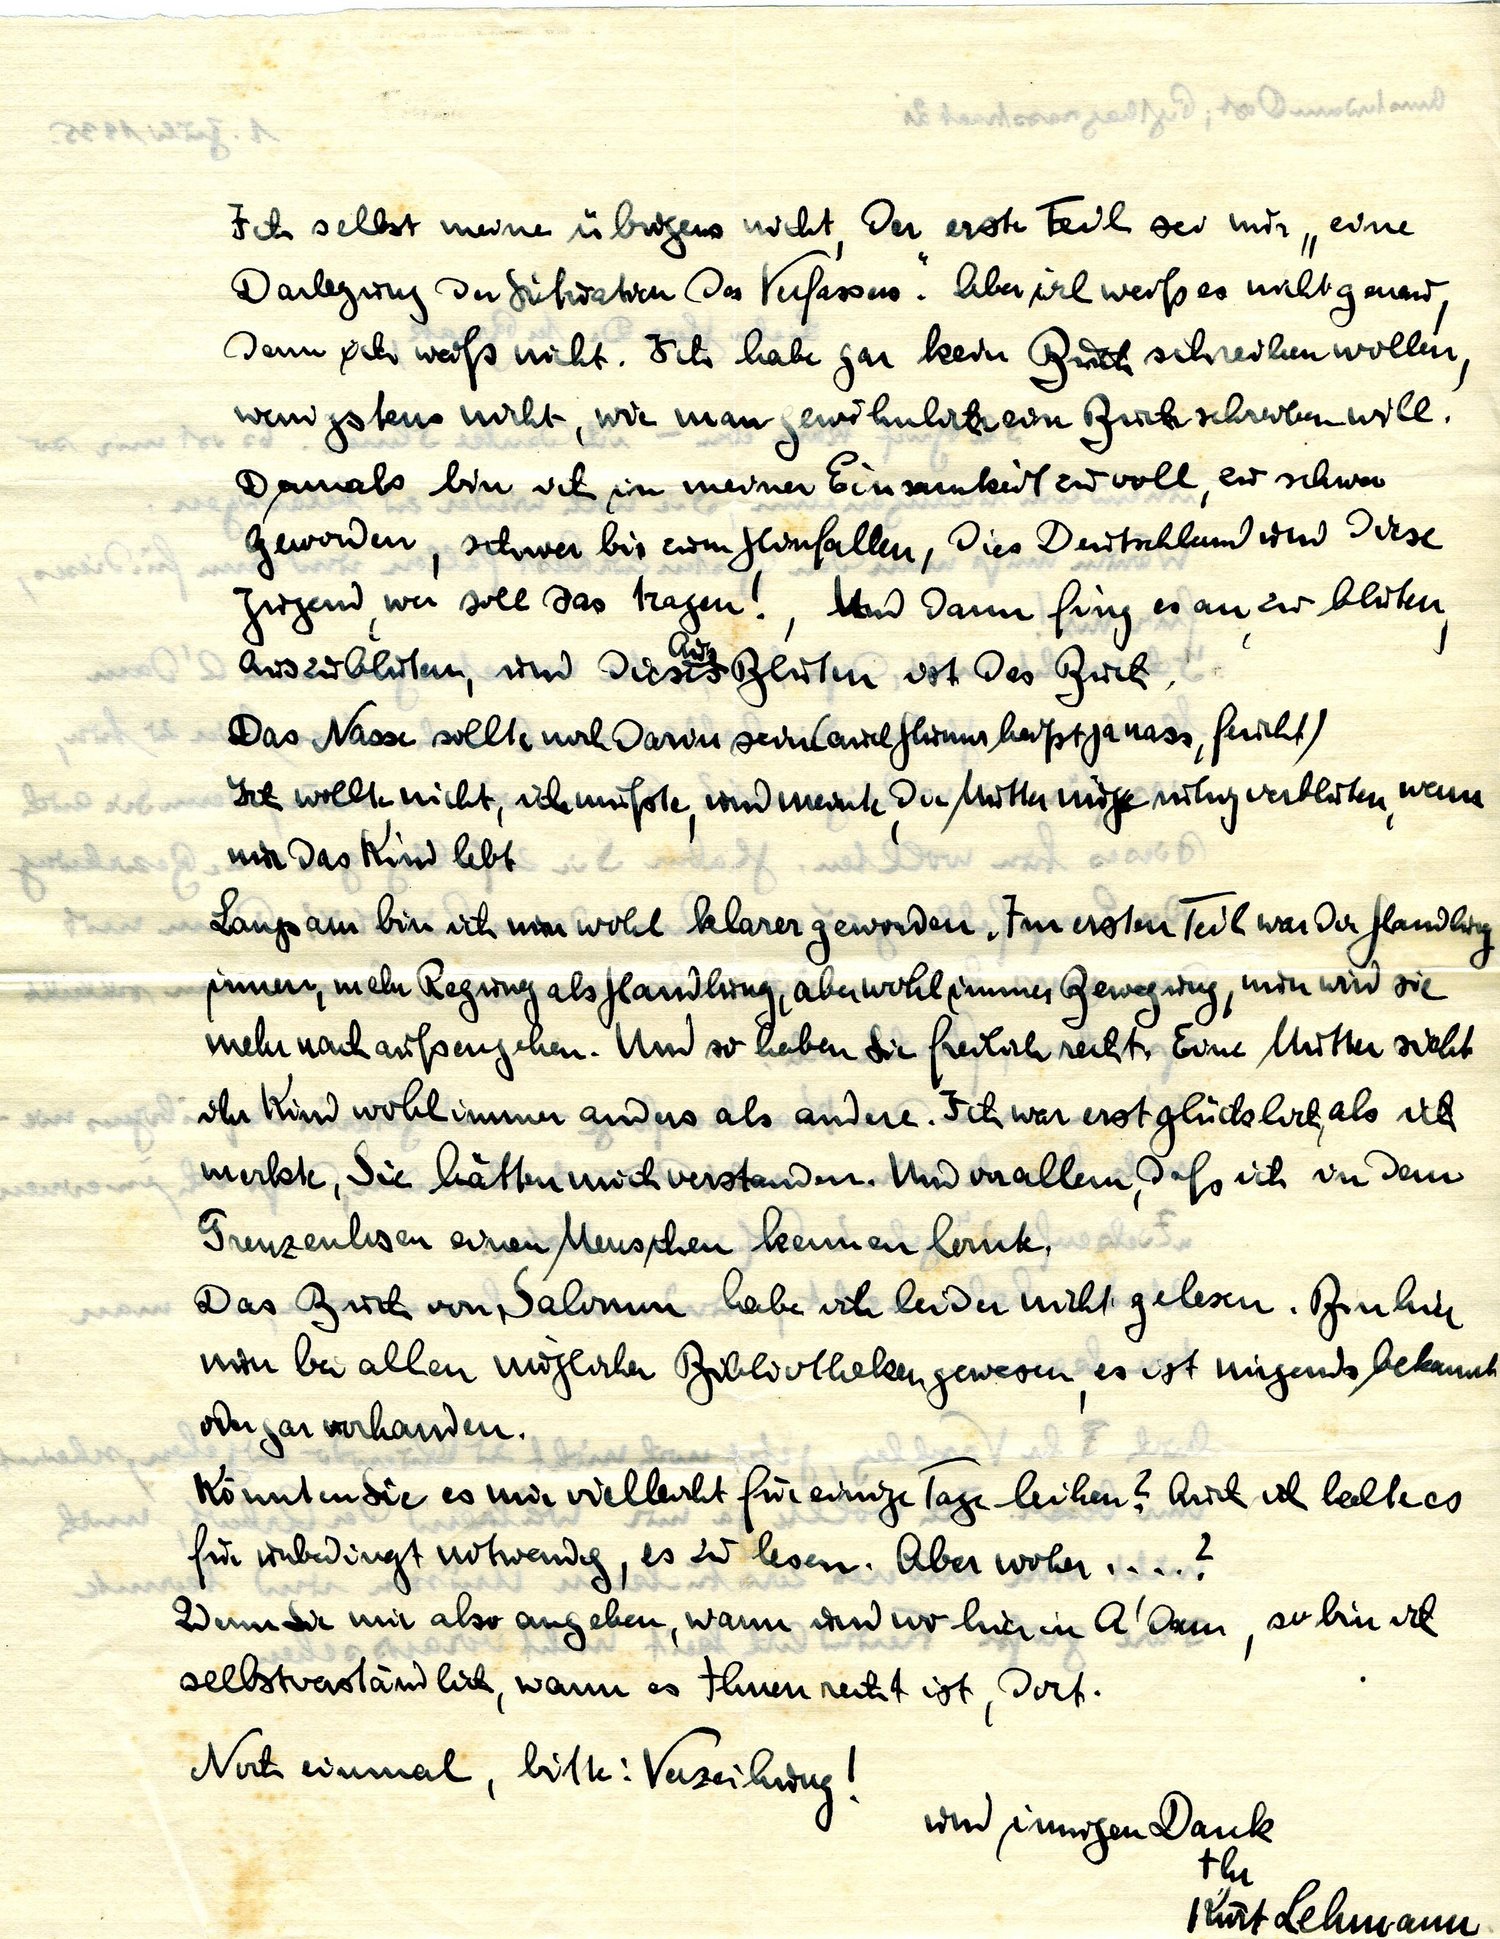 Ich selbst meine übrigens nicht, der erste Teil sei nur „eine
Darlegung der Situation des Verfassers“. Aber ich weiß es nicht genau,
denn ich weiß nicht. Ich habe gar kein Buch schreiben wollen,
wenigstens nicht, wie man gewöhnlich ein Buch schreiben will.
Damals bin ich in meiner Einsamkeit zu voll, zu schwer
geworden, schwer bis zum Hinfallen, dies Deutschland und diese
Jugend, wer soll das tragen!, Und dann fing es an, zu bluten,
auszubluten, und dieses Ausbluten ist das Buch.
Das Nasse sollte noch darin sein (auch Humor heißt ja nass, feucht)
Ich wollte nicht, ich mußte, und meinte, die Mutter möge ruhig verbluten, wenn
nur das Kind lebt
Langsam bin ich nun wohl klarer geworden. Im ersten Teil war die Handlung
innen, mehr Regung als Handlung, aber wohl immer Bewegung, nun wird sie
mehr nach außen gehen. Und so haben Sie freilich recht. Eine Mutter sieht
ihr Kind wohl immer anders als andere. Ich war erst glücklich, als ich
merkte, Sie hätten mich verstanden. Und vor allem, daß ich in dem
Grenzenlosen einen Menschen kennen lernte.
Das Buch von Salomon habe ich leider nicht gelesen. Bin hier
nun bei allen möglichen Bibliotheken gewesen, es ist nirgends bekannt
oder gar vorhanden.
Könnten Sie es mir vielleicht für einige Tage leihen? Auch ich halte es
für unbedingt notwendig, es zu lesen. Aber woher ....?
Wenn Sie mir also angeben, wann und wo hier in A'dam, so bin ich
selbstverständlich, wann es Ihnen recht ist, dort.
Noch einmal, bitte: Verzeihung!
und innigen Dank
Ihr
Kurt Lehmann